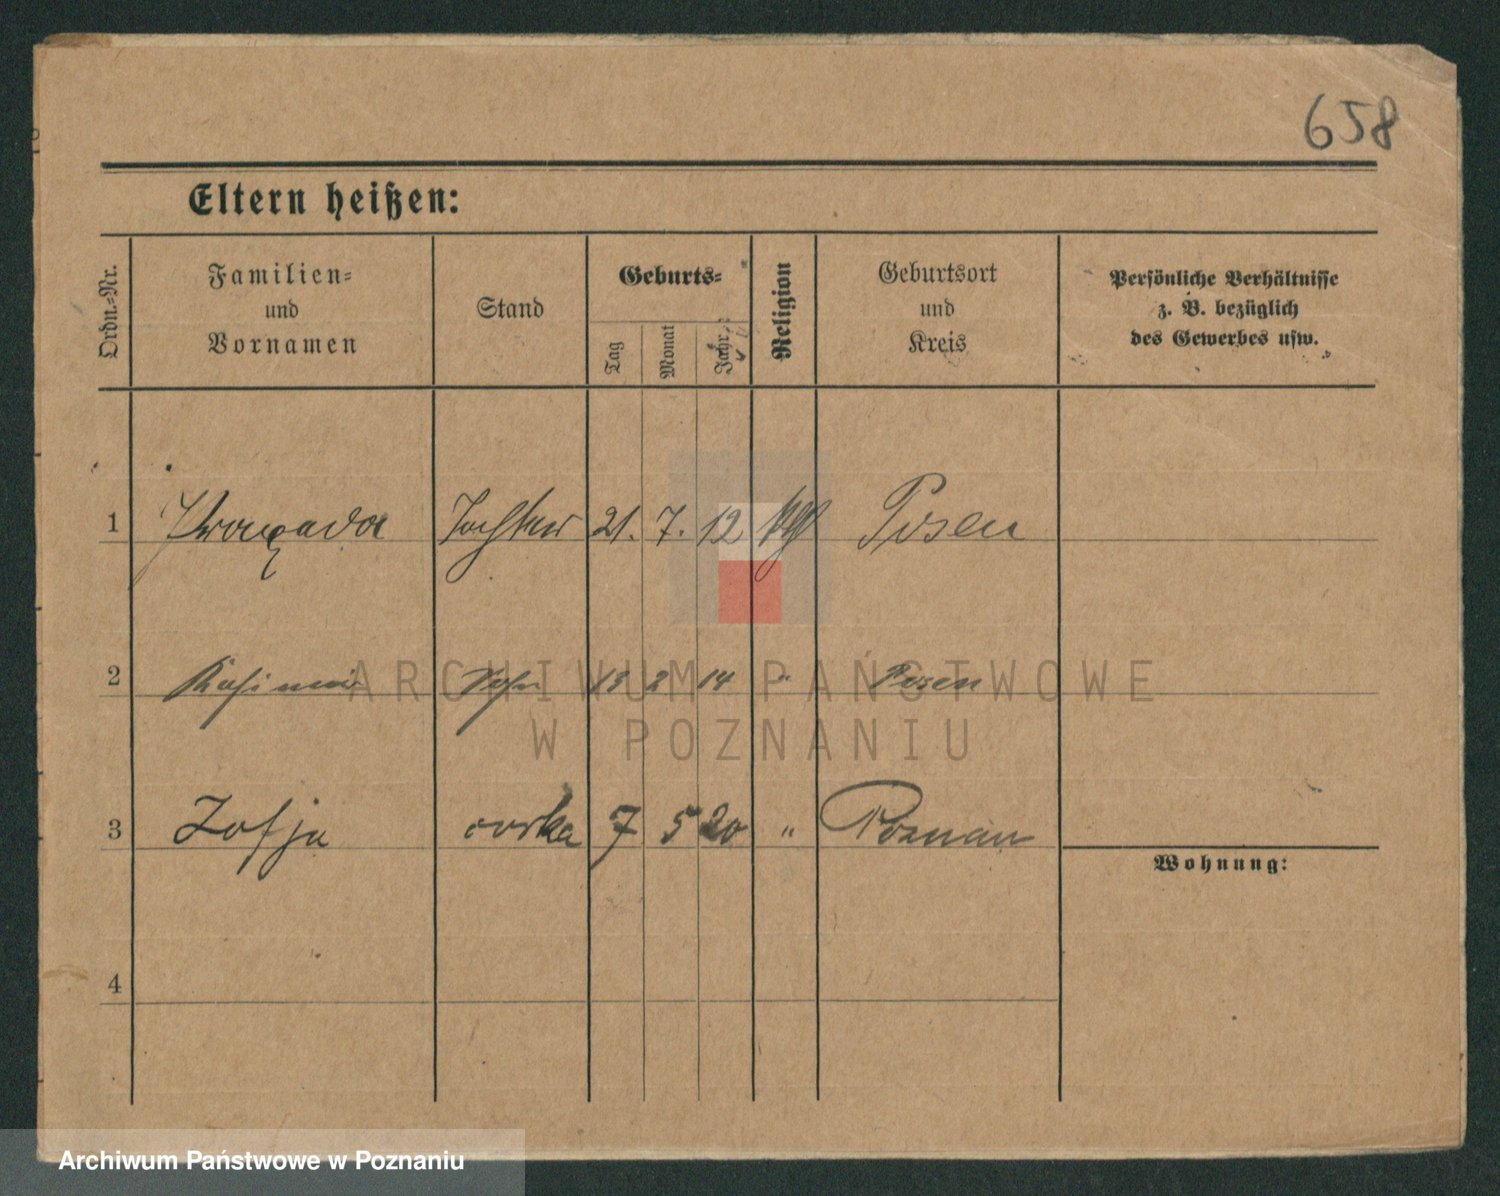 658
Eltern heißen:
Ordn.-Nr.
Familien-
und
Vornamen
Stand
Geburts-
Tag
Monat
Jahr
Religion
Geburtsort
und
Kreis
Persönliche Verhältnisse
z. B. bezüglich
des Gewerbes usw.
1 Tochter 21. 7. 12 Posen
2 Kasimir Sohn 13 2 14 " Posen
3 Zofja corka 7 5 20 " Poznan
Wohnung:
4
ARCHIWUM PAŃSTWOWE
W POZNANIU
Archiwum Państwowe w Poznaniu